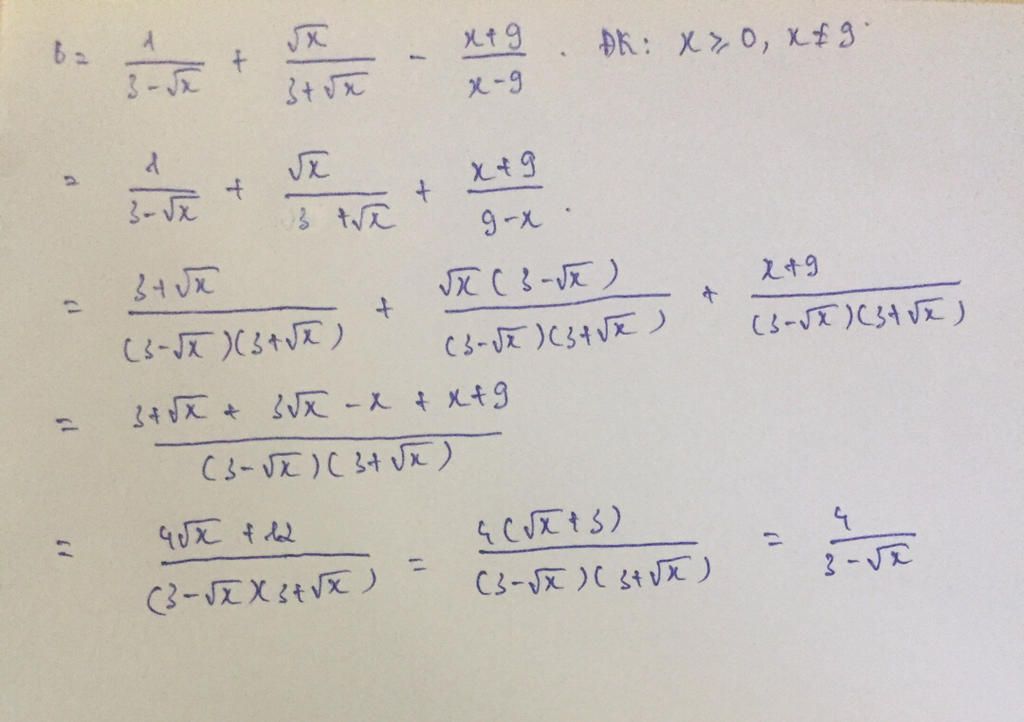 B = 1/(3-√x) + √x/(3+√x) - (x+9)/(x-9) . ĐK: x ⩾ 0, x ≠ 9.
= 1/(3-√x) + √x/(3+√x) + (x+9)/(9-x) .
= (3+√x)/((3-√x)(3+√x)) + √x(3-√x)/((3-√x)(3+√x)) + (x+9)/((3-√x)(3+√x))
= (3+√x + 3√x - x + x+9)/((3-√x)(3+√x))
= (4√x + 12)/((3-√x)(3+√x)) = 4(√x+3)/((3-√x)(3+√x)) = 4/(3-√x)